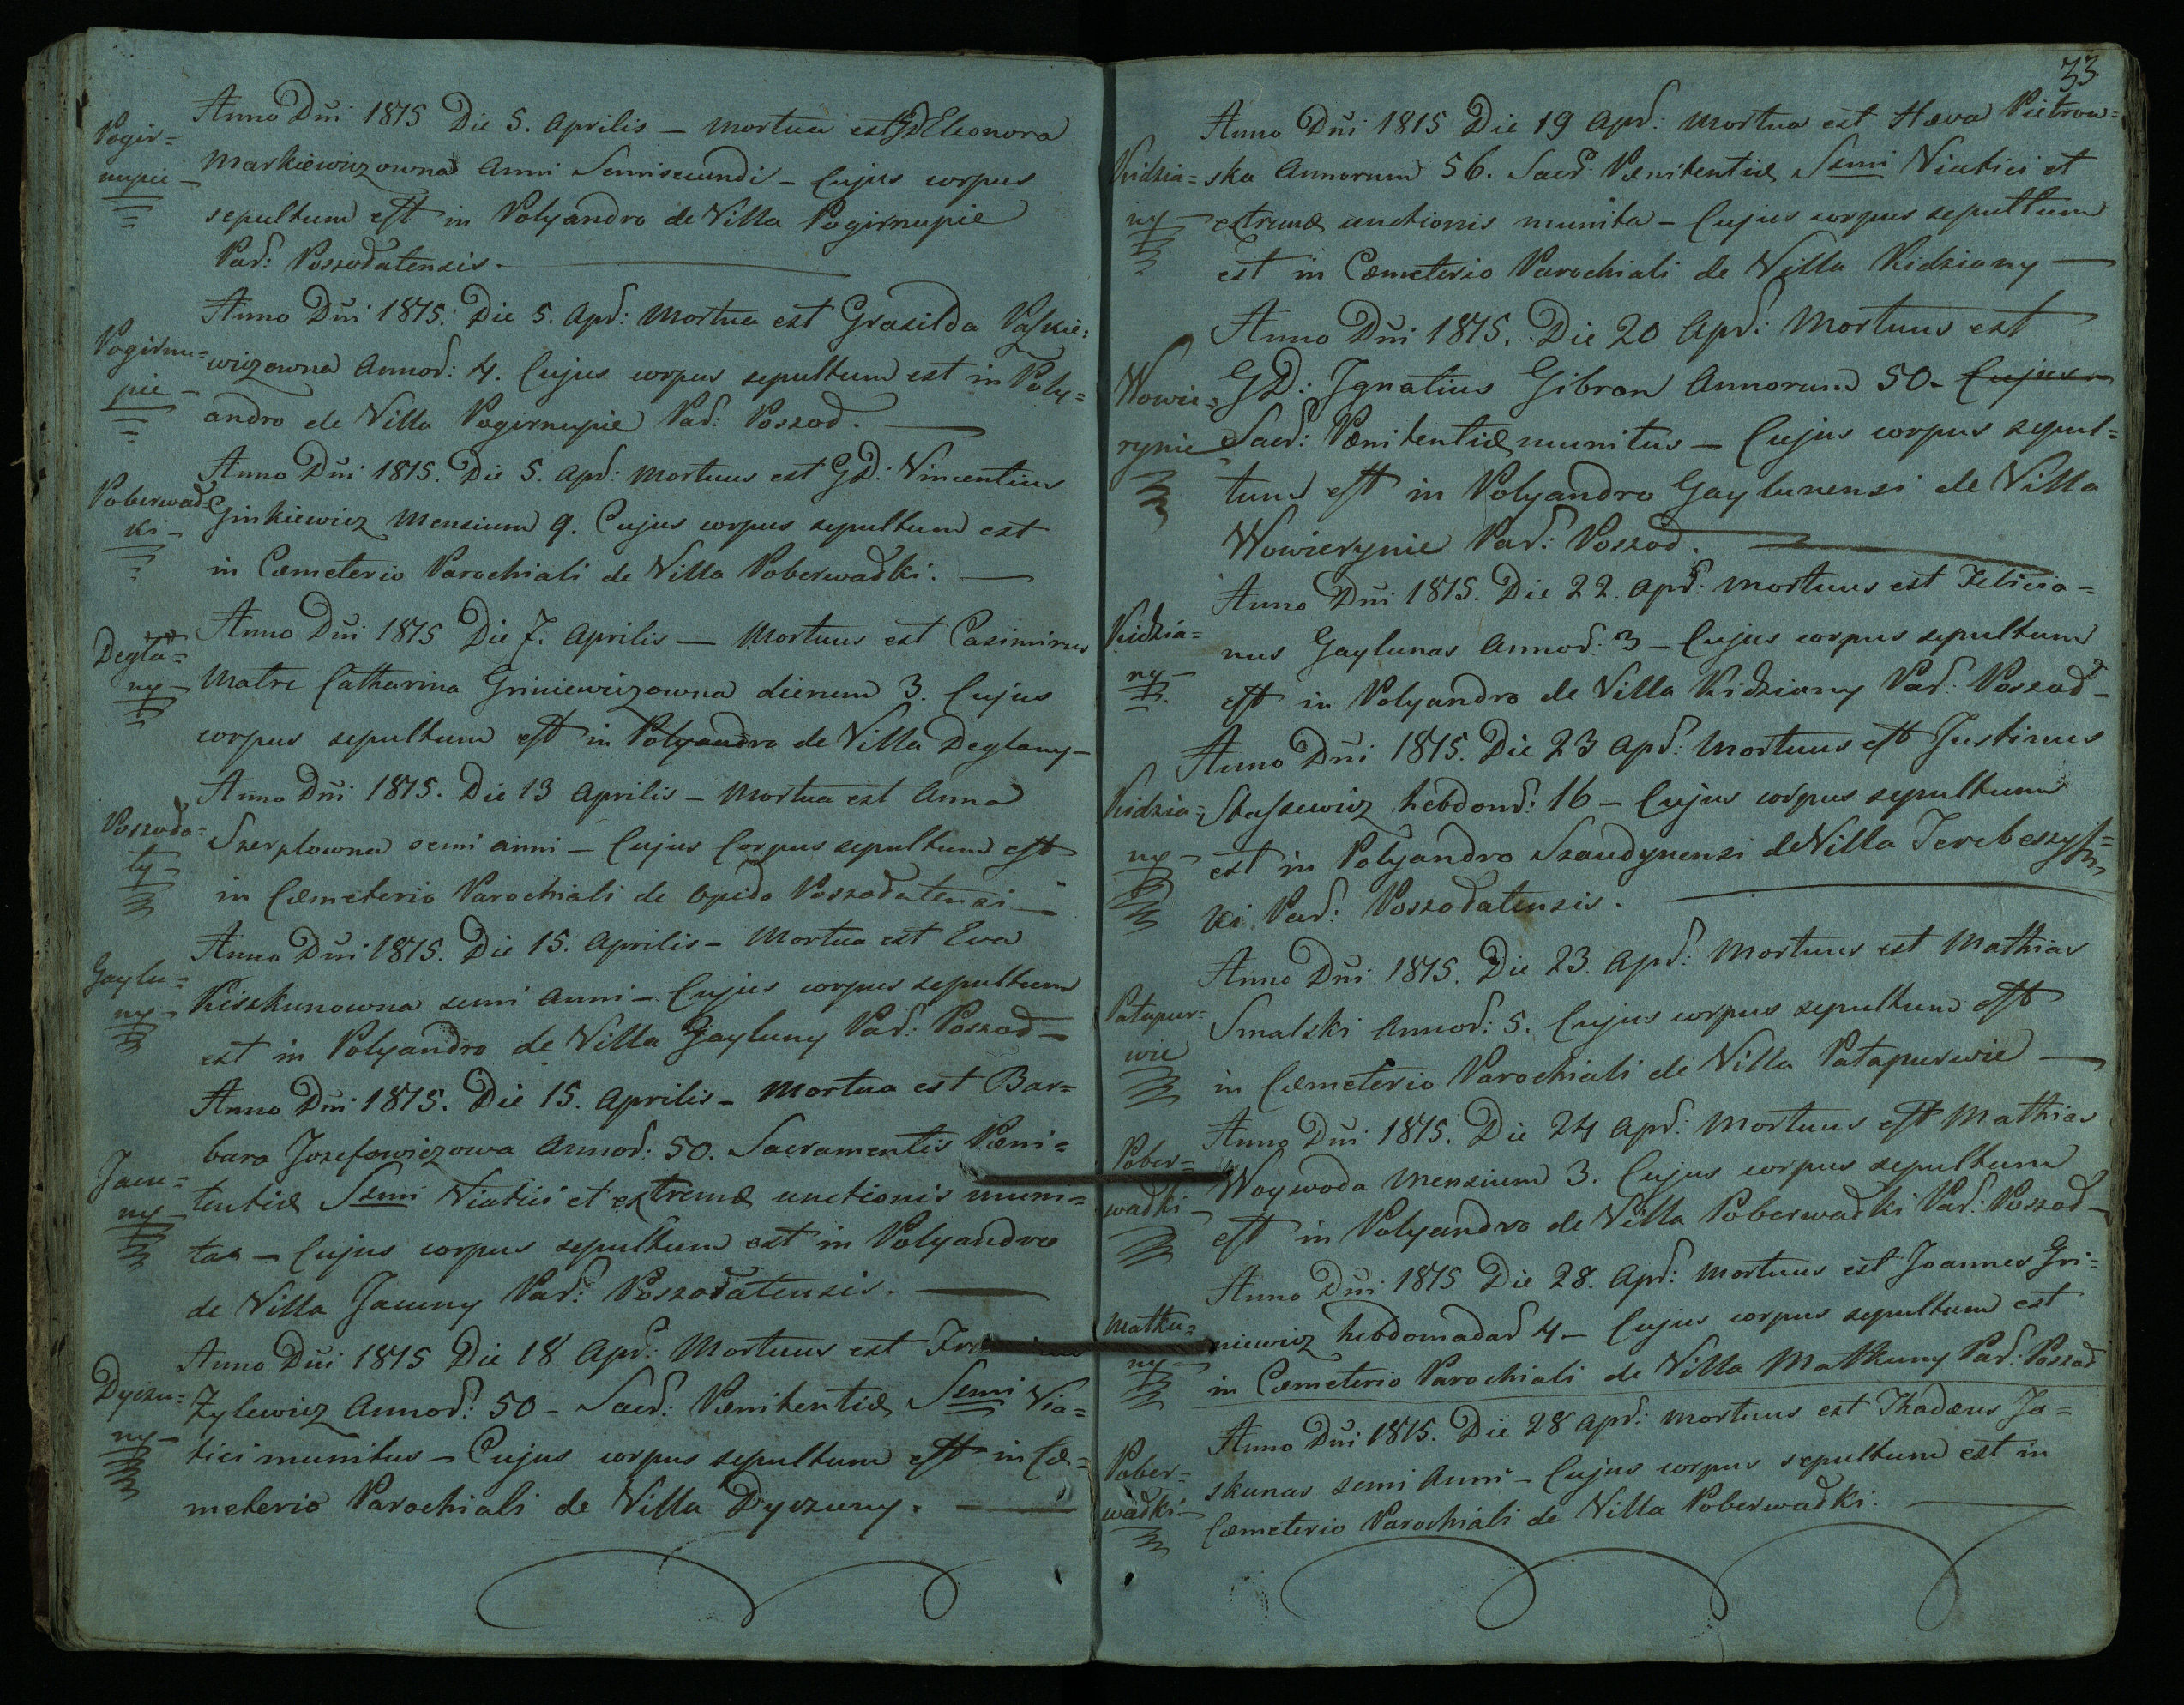 Pogir=
nupie
Anno Dni 1815 Die 5. Aprilis — Mortua est GD Eleonora
Markiewiczowna Anni Semisecundi — Cujus corpus
sepultum est in Polyandro de Villa Pogirnupie
Par: Poszodatensis.
Pogirnu=
pie
Anno Dni 1815. Die 5. Apr: Mortua est Grasilda Paszkie=
wiczowna Annor: 4. Cujus corpus sepultum est in Poly=
andro de Villa Pogirnupie Par: Poszod.
Poberwad=
ki
Anno Dni 1815. Die 5. Apr: Mortuus est GD: Vincentius
Ginkiewicz Mensium 9. Cujus corpus sepultum est
in Cæmeterio Parochiali de Villa Poberwadki.
Degla=
ny
Anno Dni 1815 Die 7. Aprilis — Mortuus est Casimirus
Matre Catharina Griniewiczowna dierum 3. Cujus
corpus sepultum est in Polyandro de Villa Deglany —
Poszoda=
ty
Anno Dni 1815. Die 13 Aprilis — Mortua est Anna
semi anni — Cujus Corpus sepultum est
in Cæmeterio Parochiali de Opido Poszodatensi —
Gaylu=
ny
Anno Dni 1815. Die 15. Aprilis — Mortua est Eva
Kiszkunowna semi Anni — Cujus corpus sepultum
est in Polyandro de Villa Gayluny Par: Poszod —
Jacu=
ny
Anno Dni 1815. Die 15. Aprilis — Mortua est Bar=
bara Jozefowiczowa Annor: 50. Sacramentis Pæni=
tentiæ Ssmi Viatici et extremæ unctionis muni=
ta — Cujus corpus sepultum est in Polyandro
de Villa Jacuny Par: Poszodatensis.
Dyczu=
ny
Anno Dni 1815 Die 18 Apr: Mortuus est
Zylewicz Annor: 50 — Sacr: Pænitentiæ Ssmi Via=
tici munitus — Cujus corpus sepultum est in Cæ=
meterio Parochiali de Villa Dyczuny.
33
Kidzia=
ny
Anno Dni 1815 Die 19 Apr: Mortua est Hæva Pietrow=
ska Annorum 56. Sacr: Pænitentiæ Ssmi Viatici et
extremæ unctionis munita — Cujus corpus sepultum
est in Cæmeterio Parochiali de Villa Kidziany —
Wowie=
rynie
Anno Dni 1815. Die 20 Apr: Mortuus est
GD: Ignatius Gibron Annorum 50 — Cujus
Sacr: Pænitentiæ munitus — Cujus corpus sepul=
tum est in Polyandro Gaylunensi de Villa
Wowierynie Par: Poszod.
Kidzia=
ny
Anno Dni 1815. Die 22. Apr: Mortuus est Felicia=
nus Gaylunas Annor: 3 — Cujus corpus sepultum
est in Polyandro de Villa Kidziany Par: Poszod —
Kidzia=
ny
Anno Dni 1815. Die 23 Apr: Mortuus est Justinus
Staszewicz hebdom: 16 — Cujus corpus sepultum
est in Polyandro Szaudynensi de Villa
ki Par: Poszodatensis.
Patapur=
wie
Anno Dni 1815. Die 23. Apr: Mortuus est Mathias
Smalski Annor: 5. Cujus corpus sepultum est
in Cæmeterio Parochiali de Villa Patapurwie —
Pober=
wadki
Anno Dni 1815. Die 24 Apr: Mortuus est Mathias
Woywoda Mensium 3. Cujus corpus sepultum
est in Polyandro de Villa Poberwadki Par: Poszod —
Matku=
ny
Anno Dni 1815 Die 28. Apr: Mortuus est Joannes Gri=
niewicz hebdomadar 4 — Cujus corpus sepultum est
in Cæmeterio Parochiali de Villa Matkuny Par: Poszod
Pober=
wadki
Anno Dni 1815. Die 28 Apr: Mortuus est Thadæus Ja=
skunas semi Anni — Cujus corpus sepultum est in
Cæmeterio Parochiali de Villa Poberwadki.